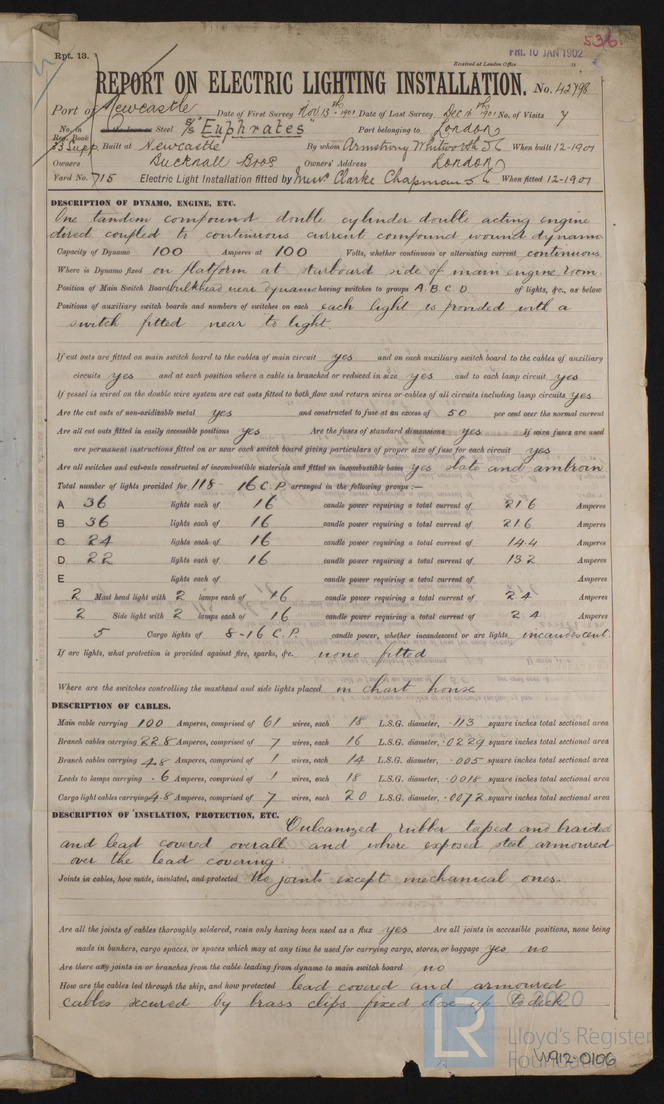 Rpt. 13.
FRI. 10 JAN 1902
536.
Received at London Office
REPORT ON ELECTRIC LIGHTING INSTALLATION. No. 42798
Port of Newcastle Date of First Survey Nov 13th 1901 Date of Last Survey Dec 16th 1901 No. of Visits 7
No. in Reg. Book on the Iron or Steel S/S "Euphrates" Port belonging to London
23 Supp Built at Newcastle By whom Armstrong Whitworth & Co When built 12-1901
Owners Bucknall Bros Owners' Address London
Yard No. 715 Electric Light Installation fitted by Messrs Clarke Chapman & Co When fitted 12-1901
DESCRIPTION OF DYNAMO, ENGINE, ETC.
One tandem compound double cylinder double acting engine
direct coupled to continuous current compound wound dynamo
Capacity of Dynamo 100 Amperes at 100 Volts, whether continuous or alternating current continuous
Where is Dynamo fixed on platform at starboard side of main engine room.
Position of Main Switch Board bulkhead near dynamo having switches to groups A B C D of lights, &c., as below
Positions of auxiliary switch boards and numbers of switches on each each light is provided with a
switch fitted near to light.
If cut outs are fitted on main switch board to the cables of main circuit yes and on each auxiliary switch board to the cables of auxiliary
circuits yes and at each position where a cable is branched or reduced in size yes and to each lamp circuit yes
If vessel is wired on the double wire system are cut outs fitted to both flow and return wires or cables of all circuits including lamp circuits yes
Are the cut outs of non-oxidizable metal yes and constructed to fuse at an excess of 50 per cent over the normal current
Are all cut outs fitted in easily accessible positions yes Are the fuses of standard dimensions yes If wire fuses are used
are permanent instructions fitted on or near each switch board giving particulars of proper size of fuse for each circuit yes
Are all switches and cut-outs constructed of incombustible materials and fitted on incombustible bases yes slate and ambroin
Total number of lights provided for 118 - 16 C.P. arranged in the following groups :—
A 36 lights each of 16 candle power requiring a total current of 21.6 Amperes
B 36 lights each of 16 candle power requiring a total current of 21.6 Amperes
C 24 lights each of 16 candle power requiring a total current of 14.4 Amperes
D 22 lights each of 16 candle power requiring a total current of 13.2 Amperes
E lights each of candle power requiring a total current of Amperes
2 Mast head light with 2 lamps each of 16 candle power requiring a total current of 2.4 Amperes
2 Side light with 2 lamps each of 16 candle power requiring a total current of 2.4 Amperes
5 Cargo lights of 8-16 C.P. candle power, whether incandescent or arc lights incandescent.
If arc lights, what protection is provided against fire, sparks, &c. none fitted
Where are the switches controlling the masthead and side lights placed in chart house
DESCRIPTION OF CABLES.
Main cable carrying 100 Amperes, comprised of 61 wires, each 18 L.S.G. diameter, .113 square inches total sectional area
Branch cables carrying 22.8 Amperes, comprised of 7 wires, each 16 L.S.G. diameter, .0229 square inches total sectional area
Branch cables carrying 4.8 Amperes, comprised of 1 wires, each 14 L.S.G. diameter, .005 square inches total sectional area
Leads to lamps carrying .6 Amperes, comprised of 1 wires, each 18 L.S.G. diameter, .0018 square inches total sectional area
Cargo light cables carrying 4.8 Amperes, comprised of 7 wires, each 20 L.S.G. diameter, .0072 square inches total sectional area
DESCRIPTION OF INSULATION, PROTECTION, ETC.
Vulcanized rubber taped and braided
and lead covered overall and where exposed steel armoured
over the lead covering.
Joints in cables, how made, insulated, and protected No joints except mechanical ones.
Are all the joints of cables thoroughly soldered, resin only having been used as a flux yes Are all joints in accessible positions, none being
made in bunkers, cargo spaces, or spaces which may at any time be used for carrying cargo, stores, or baggage yes no
Are there any joints in or branches from the cable leading from dynamo to main switch board no
How are the cables led through the ship, and how protected lead covered and armoured
cables secured by brass clips fixed close up to deck
© 2020
LR
Lloyd's Register
Foundation
W912-0106